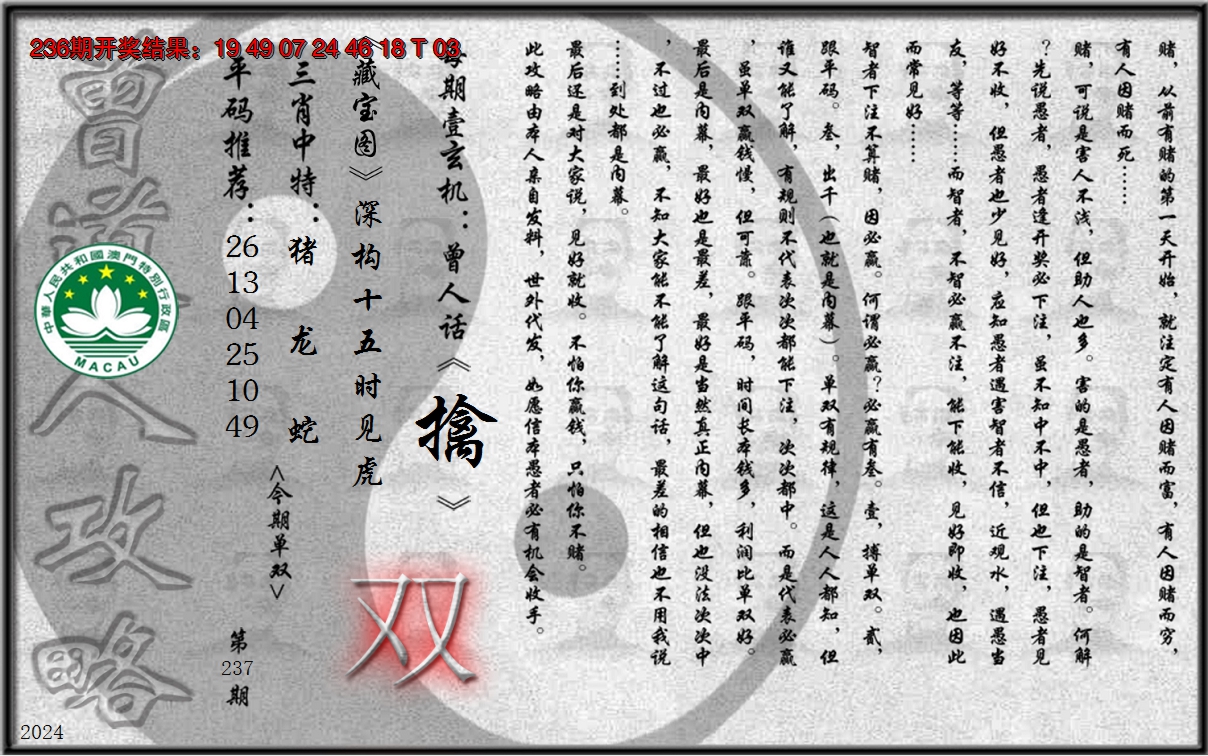 236期开奖结果：19 49 07 24 46 18 T 03
赌，从前有赌的第一天开始，就注定有人因赌而富，有人因赌而穷，
有人因赌而死……
赌，可说是害人不浅，但助人也多。害的是愚者，助的是智者。何解
？先说愚者，愚者逢开奖必下注，虽不知中不中，但也下注，愚者见
好不收，但愚者也少见好，应知愚者遇害智者不信，近观水，遇愚当
友，等等……而智者，不智必赢不注，能下能收，见好即收，也因此
而常见好……
智者下注不算赌，因必赢。何谓必赢？必赢有叁。壹，搏单双。贰，
跟平码。叁，出千（也就是内幕）。单双有规律，这是人人都知，但
谁又能了解，有规则不代表次次都能下注，次次都中。而是代表必赢
，虽单双赢钱慢，但可靠。跟平码，时间长本钱多，利润比单双好。
最后是内幕，最好也是最差，最好是当然真正内幕，但也没法次次中
，不过也必赢，不知大家能不能了解这句话，最差的相信也不用我说
……到处都是内幕。
最后还是对大家说，见好就收。不怕你赢钱，只怕你不赌。
此攻略由本人亲自发料，世外代发，如愿信本愚者必有机会收手。
每期壹玄机：曾人话《擒》
《藏宝图》深构十五时见虎
双
三肖中特：猪 龙 蛇
<今期单双>
平码推荐：26 13 04 25 10 49
第237期
曾道人攻略
中華人民共和國澳門特別行政區
MACAU
2024